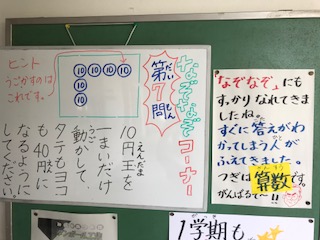 なぞなぞコーナー
第7問
だい
もん
ヒント
うごかすのは
これです。
10 10 10 10
10
10
10円玉を
えんだま
一まいだけ
動かして、
うご
タテもヨコ
も40円に
えん
なるように
してください。
「なぞなぞ」にも
すっかりなれてきま
したね。
すぐに答えがわ
かってしまう人が
ふえてきました。
つぎは算数です。
がんばるぞ〜!!
1学期も